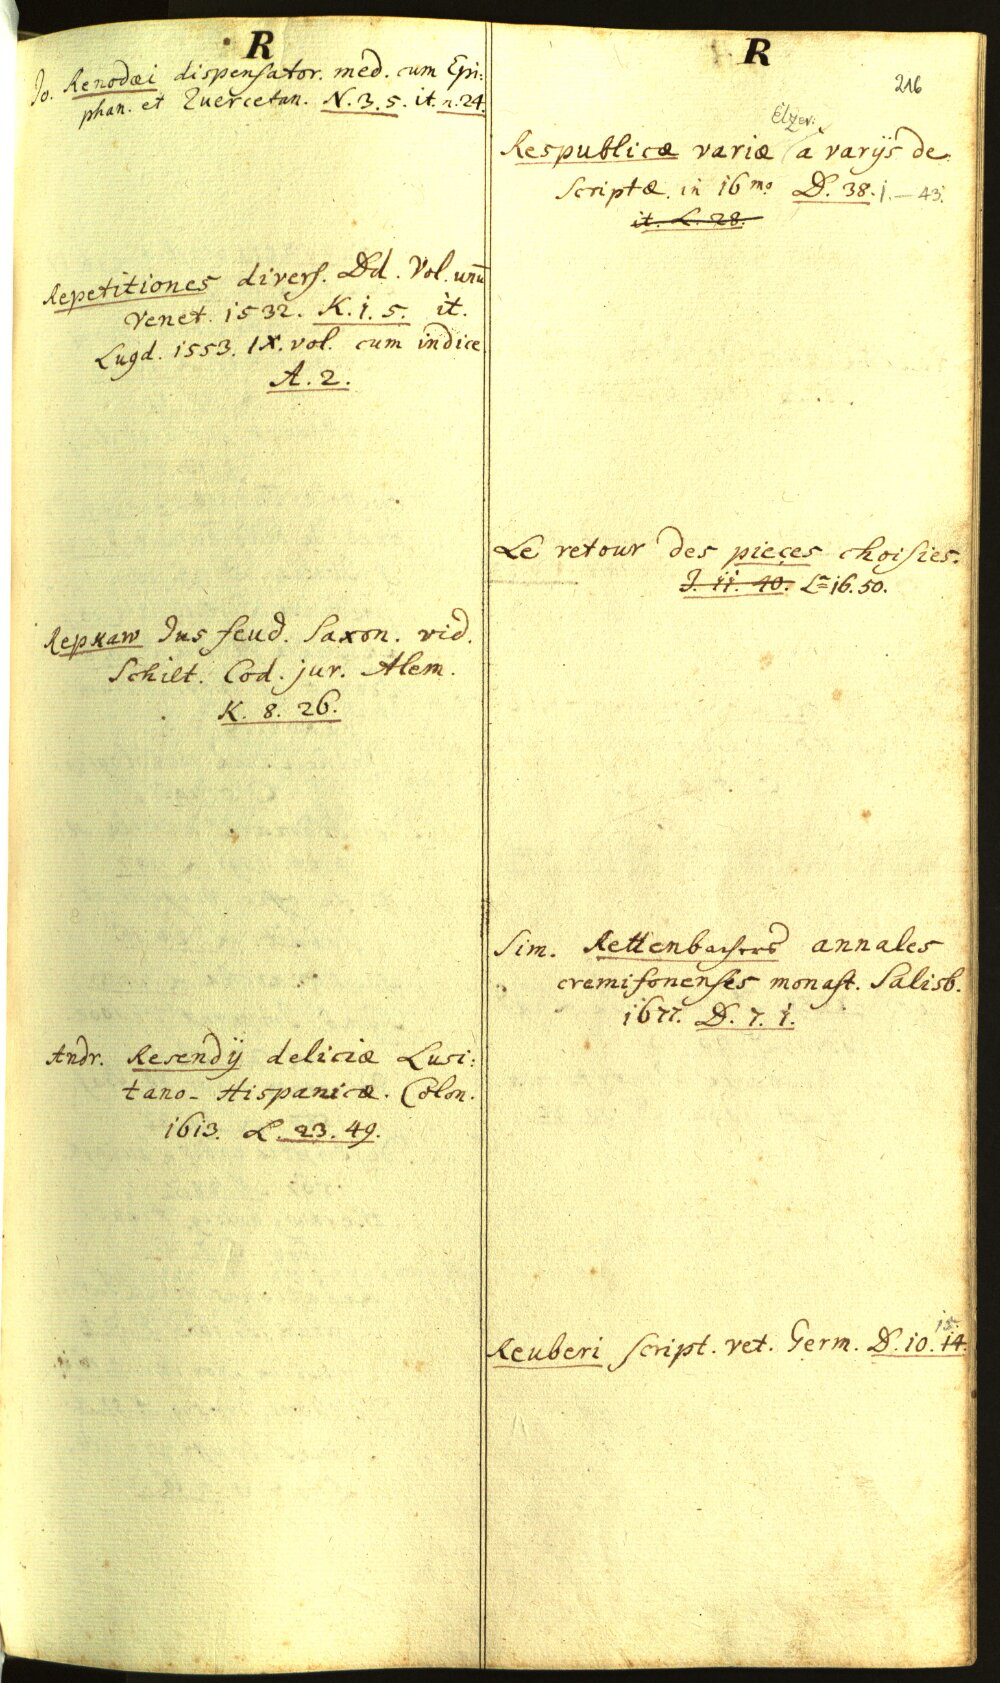 R
Jo. Renodæi dispensator. med. cum Epi:
phan. et Quercetan. N. 3. 5. it. n. 24.
Repetitiones divers. Dd. Vol. unū
Venet. 1532. K. 1. 5. it.
Lugd. 1553. IX. vol. cum indice
A. 2.
Repkaw Jus feud. Saxon. vid.
Schilt. Cod. jur. Alem.
K. 8. 26.
Andr. Resendij deliciæ Lusi:
tano-Hispanicæ. Colon.
1613. L. 23. 49.
R
216
Elzev:
Respublicæ variæ a varijs de
scriptæ. in 16mo D. 38. 1. — 43.
it. L. 28.
Le retour des pieçes choisies.
J. 11. 40. L= 16. 50.
Sim. Rettenbachers annales
cremifonenses monast. Salisb.
1677. D. 7. 1.
Reuberi script. vet. Germ. D. 10. 14.
15.